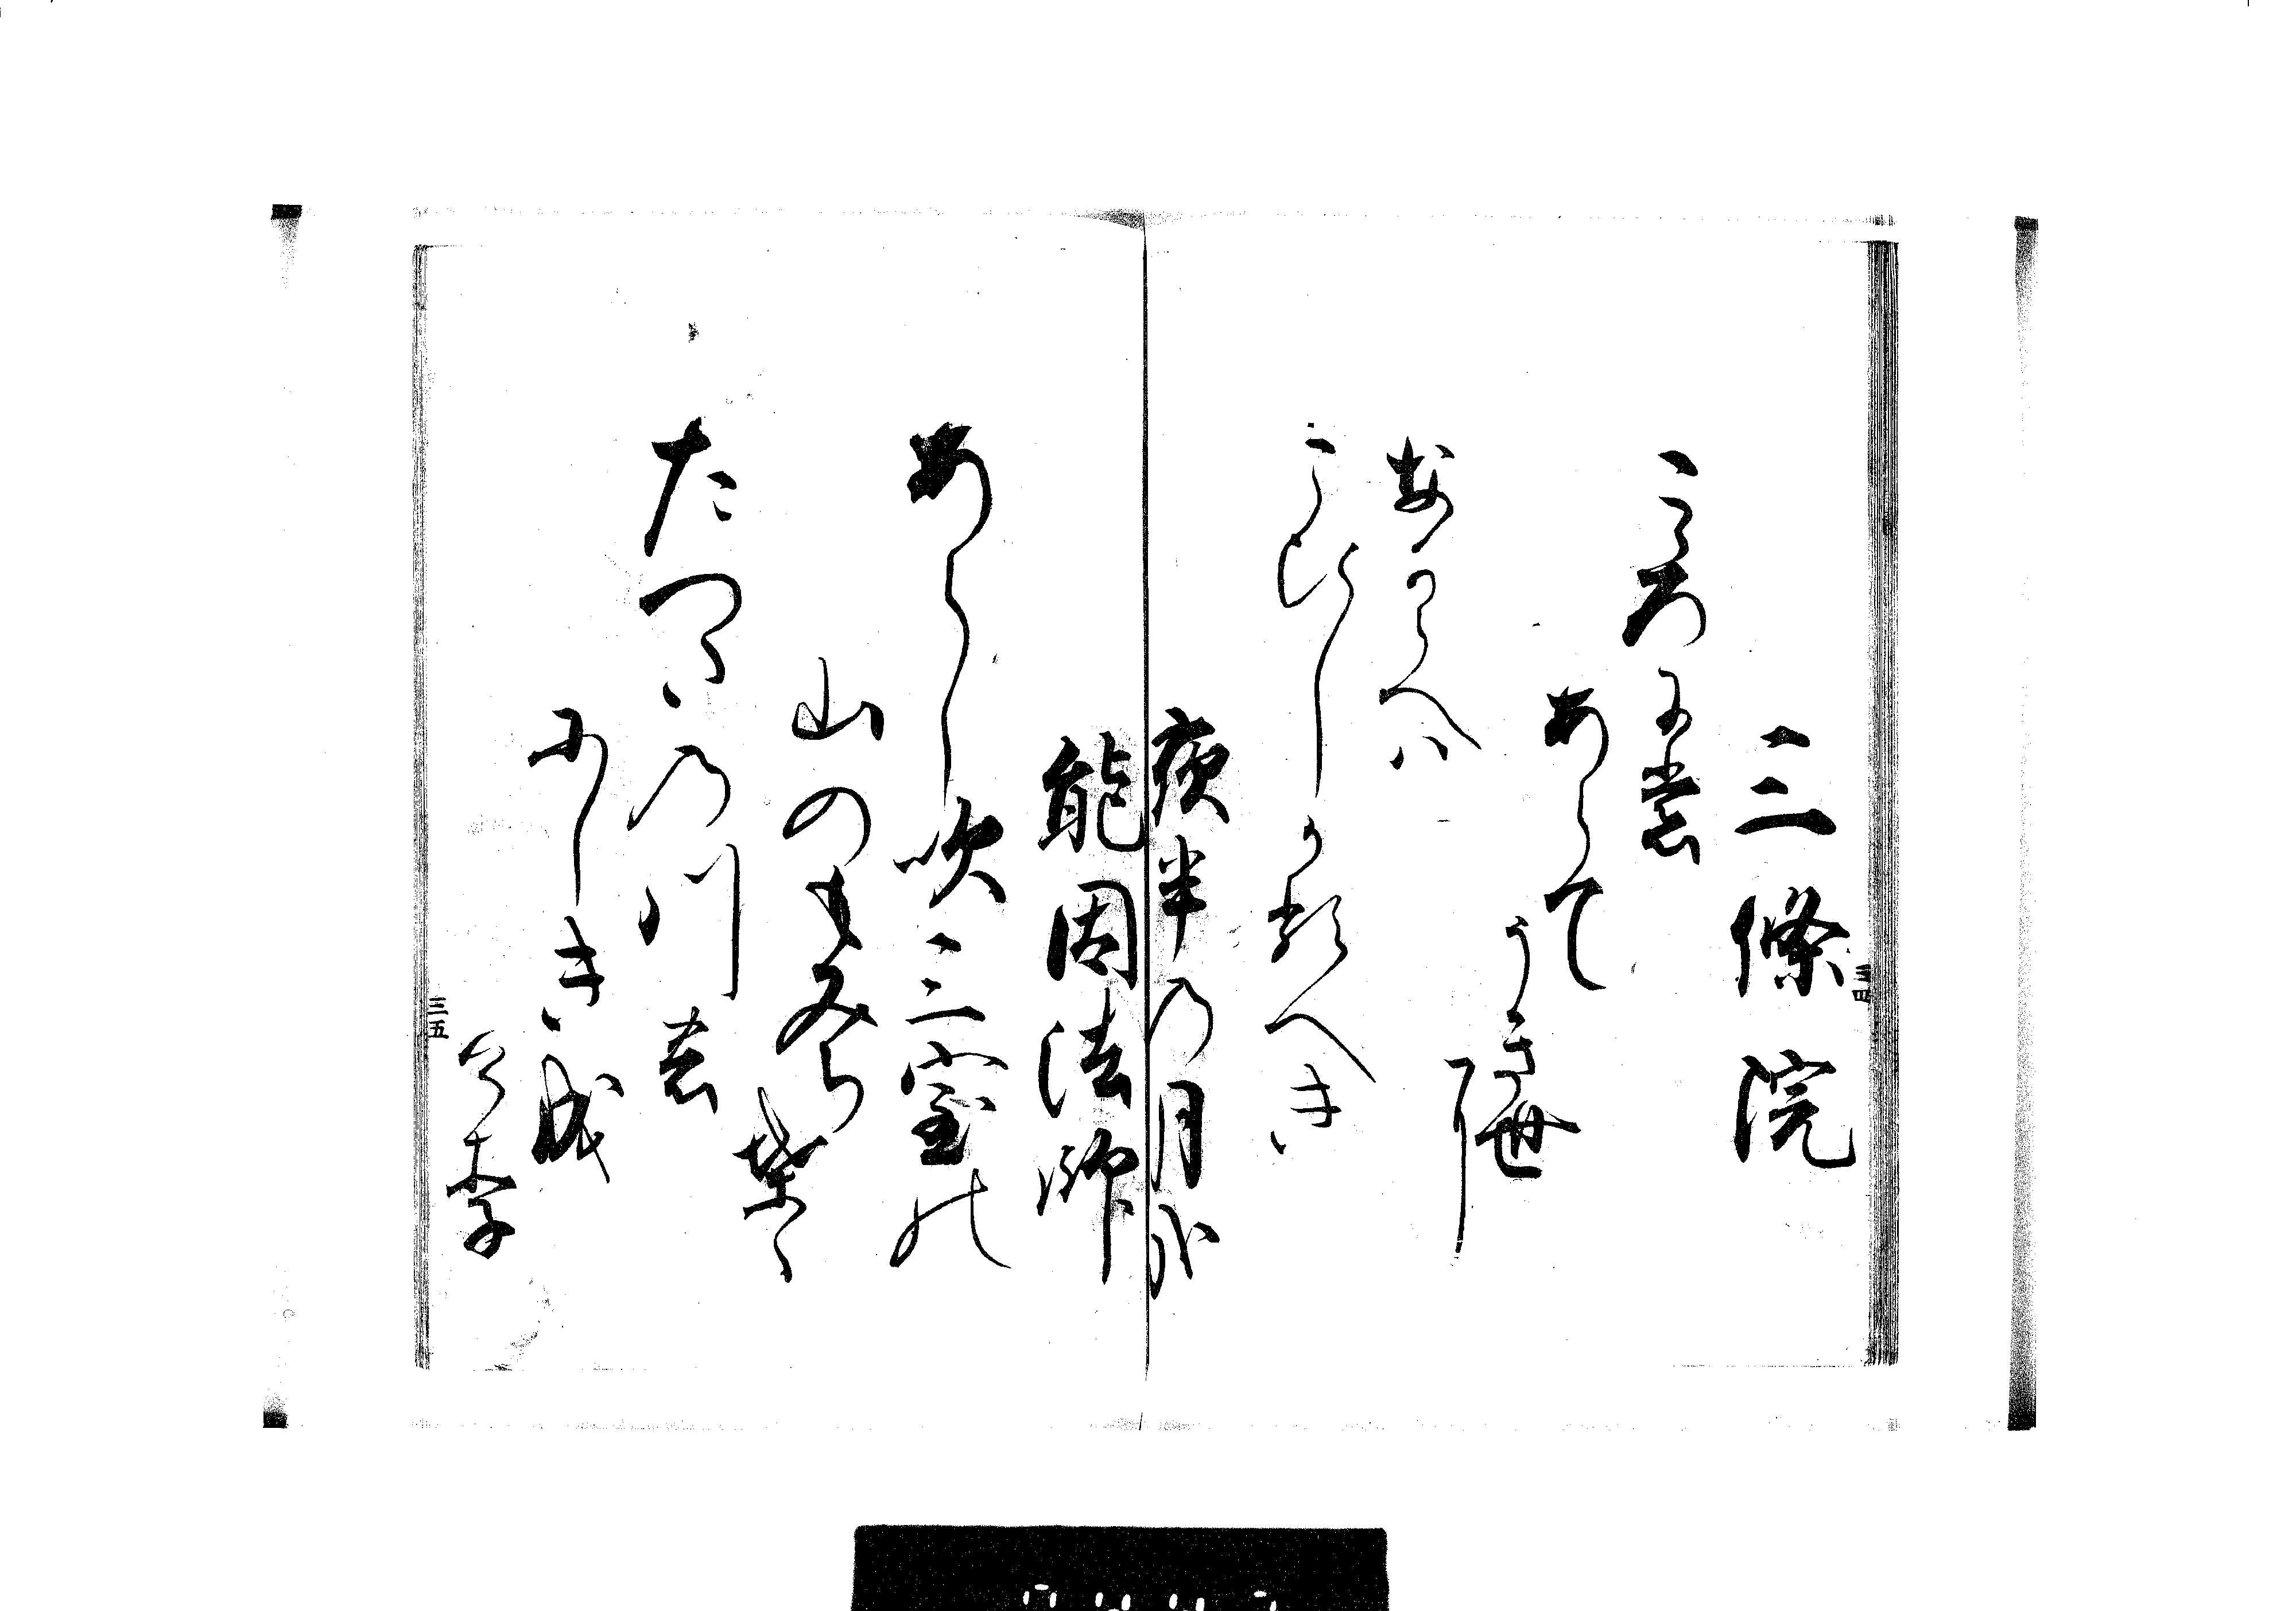 三條院
こゝろにも
あらて
うき世に
なからへは
こひしかるへき
夜半の月かな
能因法師
あらし吹三室の
山のもみち葉は
たつたの川の
にしき成
けり
三四
三五